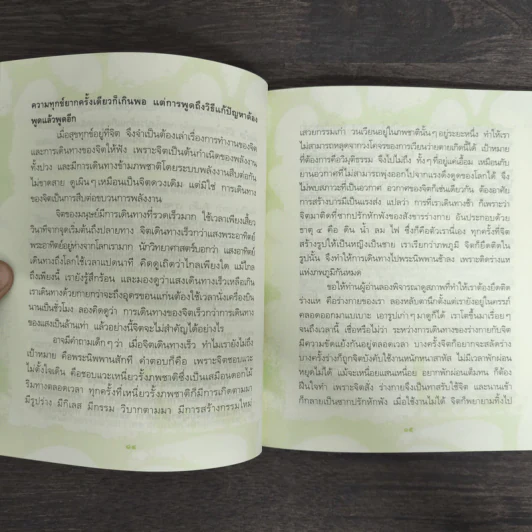 ความทุกข์ยากครั้งเดียวก็เกินพอ แต่การพูดถึงวิธีแก้ปัญหาต้อง
พูดแล้วพูดอีก
เมื่อสุขทุกข์อยู่ที่จิต จึงจำเป็นต้องเล่าเรื่องการทำงานของจิต
และการเดินทางของจิตให้ฟัง เพราะจิตเป็นต้นกำเนิดของพลังงาน
ทั้งปวง และมีการเดินทางข้ามภพชาติโดยระบบพลังงานสืบต่อกัน
ไม่ขาดสาย ดูเผินๆเหมือนเป็นจิตดวงเดิม แต่มิใช่ การเดินทาง
ของจิตเป็นการสืบต่อขบวนการพลังงาน
จิตของมนุษย์มีการเดินทางที่รวดเร็วมาก ใช้เวลาเพียงเสี้ยว
วินาทีจากจุดเริ่มต้นถึงปลายทาง จิตเดินทางเร็วกว่าแสงพระอาทิตย์
พระอาทิตย์อยู่ห่างจากโลกเรามาก นักวิทยาศาสตร์บอกว่า แสงอาทิตย์
เดินทางถึงโลกใช้เวลาแปดนาที คิดดูเถิดว่าไกลเพียงใด แม้ไกล
ถึงเพียงนี้ เรายังรู้สึกร้อน และมองดูว่าแสงเดินทางเร็วเหลือเกิน
เราเดินทางด้วยกายกว่าจะถึงอุดรขอนแก่นต้องใช้เวลานั่งเครื่องบิน
นานเป็นชั่วโมง ลองคิดดูว่า การเดินทางของจิตเร็วกว่าการเดินทาง
ของแสงเป็นล้านเท่า แล้วอย่างนี้จิตจะไม่สำคัญได้อย่างไร
อาจมีคำถามเล็กๆว่า เมื่อจิตเดินทางเร็ว ทำไมเรายังไม่ถึง
เป้าหมาย คือพระนิพพานสักที คำตอบก็คือ เพราะจิตชอบแวะ
ไม่ตั้งใจเดิน คือชอบแวะเหนี่ยวรั้งภพชาติซึ่งเป็นเสมือนดอกไม้
ริมทางตลอดเวลา ทุกครั้งที่เหนี่ยวรั้งภพชาติก็มีการเกิดตามมา
มีรูปร่าง มีกิเลส มีกรรม วิบากตามมา มีการสร้างกรรมใหม่
เสวยกรรมเก่า วนเวียนอยู่ในภพชาตินั้นๆอยู่ระยะหนึ่ง ทำให้เรา
ไม่สามารถหลุดจากวงโคจรของการเวียนว่ายตายเกิดนี้ได้ เป้าหมาย
ที่ต้องการคือวิมุติธรรม จึงไปไม่ถึง ทั้งๆที่อยู่แค่เอื้อม เหมือนกับ
ยานอวกาศที่ไม่สามารถพุ่งออกไปจากแรงดึงดูดของโลกได้ จึง
ไม่พบสภาวะที่เป็นอวกาศ อวกาศของจิตก็เช่นเดียวกัน ต้องอาศัย
การสร้างบารมีเป็นแรงส่ง แปลว่า การที่เราเดินทางช้า ก็เพราะว่า
จิตมาติดที่ซากปรักหักพังของสังขารร่างกาย อันประกอบด้วย
ธาตุ ๔ คือ ดิน น้ำ ลม ไฟ ซึ่งก็คือตัวเรานี่เอง ทุกครั้งที่จิต
สร้างรูปให้เป็นหญิงเป็นชาย เราเรียกว่าภพภูมิ จิตก็ยึดติดใน
รูปนั้น จึงทำให้การเดินทางไปพระนิพพานช้าลง เพราะติดร่างแห
แห่งภพภูมิกันหมด
ขอให้ท่านผู้อ่านลองพิจารณาดูสภาพที่ทำให้เราต้องยึดติด
ร่างแห คือร่างกายของเรา ลองหลับตานึกตั้งแต่เรายังอยู่ในครรภ์
คลอดออกมาแบเบาะ เอารูปเก่าๆมาดูก็ได้ เราโตขึ้นมาเรื่อยๆ
จนถึงเวลานี้ เชื่อหรือไม่ว่า ระหว่างการเดินทางของร่างกายกับจิต
มีความขัดแย้งกันอยู่ตลอดเวลา บางครั้งจิตก็อยากจะสลัดร่าง
บางครั้งร่างก็ถูกจิตบังคับใช้งานหนักหนาสาหัส ไม่มีเวลาพักผ่อน
หยุดไม่ได้ แม้จะเหนื่อยแสนเหนื่อย อยากพักผ่อนเต็มทน ก็ต้อง
ฝืนใจทำ เพราะจิตสั่ง ร่างกายจึงเป็นทาสรับใช้จิต และนานเข้า
ก็กลายเป็นซากปรักหักพัง เมื่อใช้งานไม่ได้ จิตก็พยายามทิ้งไป